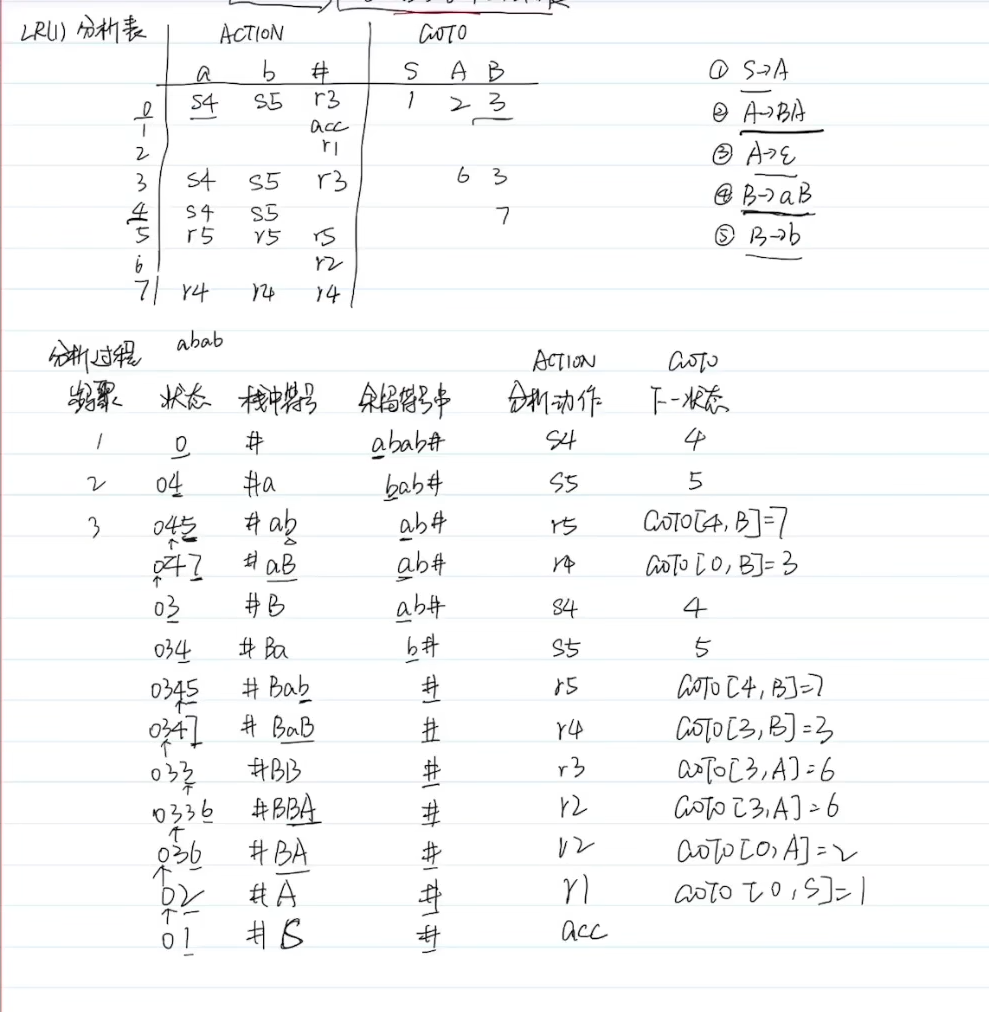 LR(1) 分析表 ACTION GOTO
a b # S A B
0 s4 s5 r3 1 2 3
1 acc
2 r1
3 s4 s5 r3 6 3
4 s4 s5 7
5 r5 r5 r5
6 r2
7 r4 r4 r4
① S→A
② A→BA
③ A→ε
④ B→aB
⑤ B→b
分析过程 abab
ACTION GOTO
步骤 状态 栈中符号 余留符号串 分析动作 下一状态
1 0 # abab# S4 4
2 04 #a bab# S5 5
3 045 #ab ab# r5 GOTO[4,B]=7
047 #aB ab# r4 GOTO[0,B]=3
03 #B ab# S4 4
034 #Ba b# S5 5
0345 #Bab # r5 GOTO[4,B]=7
0347 #BaB # r4 GOTO[3,B]=3
033 #BB # r3 GOTO[3,A]=6
0336 #BBA # r2 GOTO[3,A]=6
036 #BA # r2 GOTO[0,A]=2
02 #A # r1 GOTO[0,S]=1
01 #S # acc